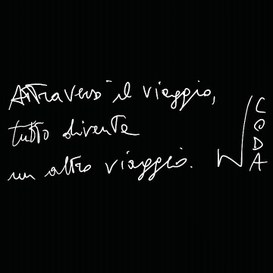 Attraverso il viaggio,
tutto diventa
un altro viaggio.
CODA